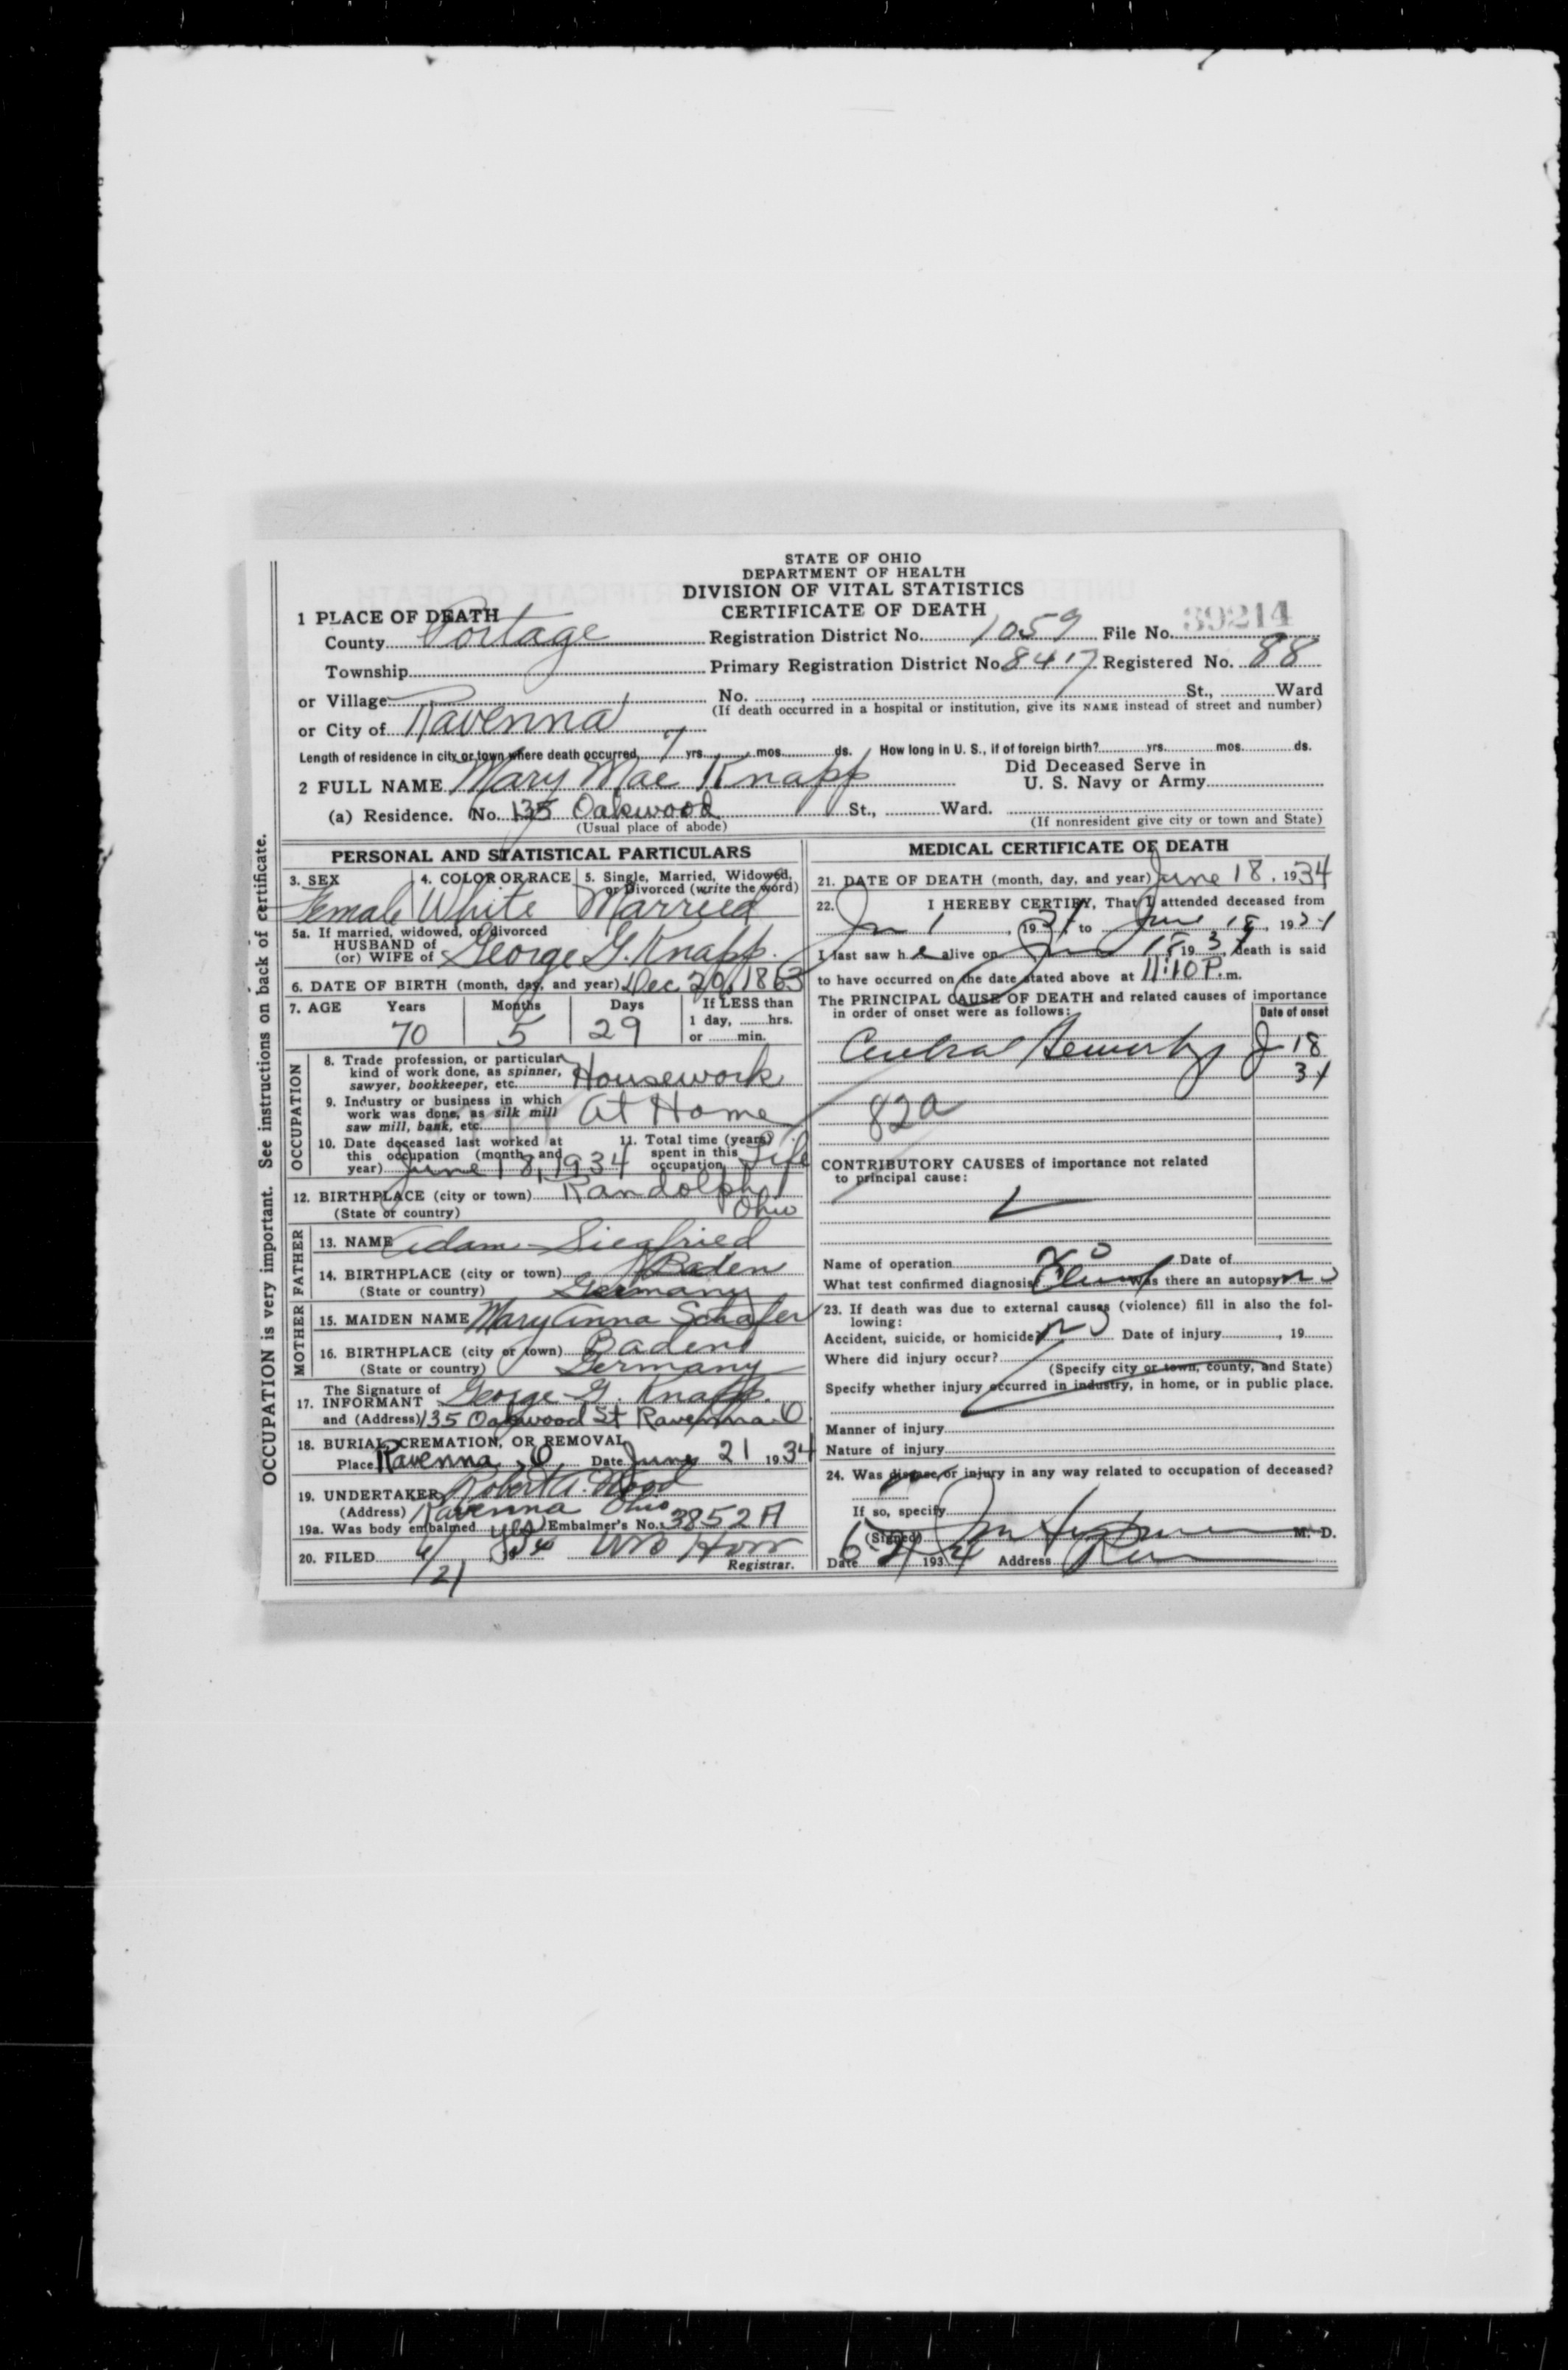 STATE OF OHIO
DEPARTMENT OF HEALTH
DIVISION OF VITAL STATISTICS
CERTIFICATE OF DEATH
1 PLACE OF DEATH
County Portage Registration District No. 1059 File No. 39214
Township Primary Registration District No. 8417 Registered No. 88
or Village No. , St., Ward
(If death occurred in a hospital or institution, give its NAME instead of street and number)
or City of Ravenna
Length of residence in city or town where death occurred 7 yrs. mos. ds. How long in U. S., if of foreign birth? yrs. mos. ds.
2 FULL NAME Mary Mae Knapp Did Deceased Serve in
U. S. Navy or Army
(a) Residence. No. 135 Oakwood St., Ward.
(Usual place of abode) (If nonresident give city or town and State)
OCCUPATION is very important. See instructions on back of certificate.
PERSONAL AND STATISTICAL PARTICULARS
3. SEX 4. COLOR OR RACE 5. Single, Married, Widowed,
or Divorced (write the word)
Female White Married
5a. If married, widowed, or divorced
HUSBAND of
(or) WIFE of George G. Knapp.
6. DATE OF BIRTH (month, day, and year) Dec 20, 1863
7. AGE Years Months Days If LESS than
70 5 29 1 day, hrs.
or min.
OCCUPATION
8. Trade profession, or particular
kind of work done, as spinner,
sawyer, bookkeeper, etc. Housework
9. Industry or business in which
work was done, as silk mill
saw mill, bank, etc. At Home
10. Date deceased last worked at
this occupation (month and
year) June 18, 1934
11. Total time (years)
spent in this
occupation Life
12. BIRTHPLACE (city or town) Randolph
(State or country) Ohio
FATHER
13. NAME Adam Siegfried
14. BIRTHPLACE (city or town) Baden
(State or country) Germany
MOTHER
15. MAIDEN NAME Mary Anna Schafer
16. BIRTHPLACE (city or town) Baden
(State or country) Germany
The Signature of
17. INFORMANT George G. Knapp.
and (Address) 135 Oakwood St Ravenna O
18. BURIAL, CREMATION, OR REMOVAL
Place Ravenna, O. Date June 21 1934
19. UNDERTAKER Robert A. Wood
(Address) Ravenna Ohio
19a. Was body embalmed yes Embalmer's No. 3852A
20. FILED 6/21
Registrar.
MEDICAL CERTIFICATE OF DEATH
21. DATE OF DEATH (month, day, and year) June 18, 1934
22. I HEREBY CERTIFY, That I attended deceased from
1, 19 to June 18, 19
I last saw h alive on 18 1934, death is said
to have occurred on the date stated above at 11:10 P. m.
The PRINCIPAL CAUSE OF DEATH and related causes of importance
in order of onset were as follows:
Date of onset
J 18
34
82a
CONTRIBUTORY CAUSES of importance not related
to principal cause:
Name of operation no Date of
What test confirmed diagnosis Was there an autopsy no
23. If death was due to external causes (violence) fill in also the fol-
lowing:
Accident, suicide, or homicide? no Date of injury , 19
Where did injury occur?
(Specify city or town, county, and State)
Specify whether injury occurred in industry, in home, or in public place.
Manner of injury
Nature of injury
24. Was disease, or injury in any way related to occupation of deceased?
If so, specify
(Signed) M. D.
Date 6 21 1934 Address